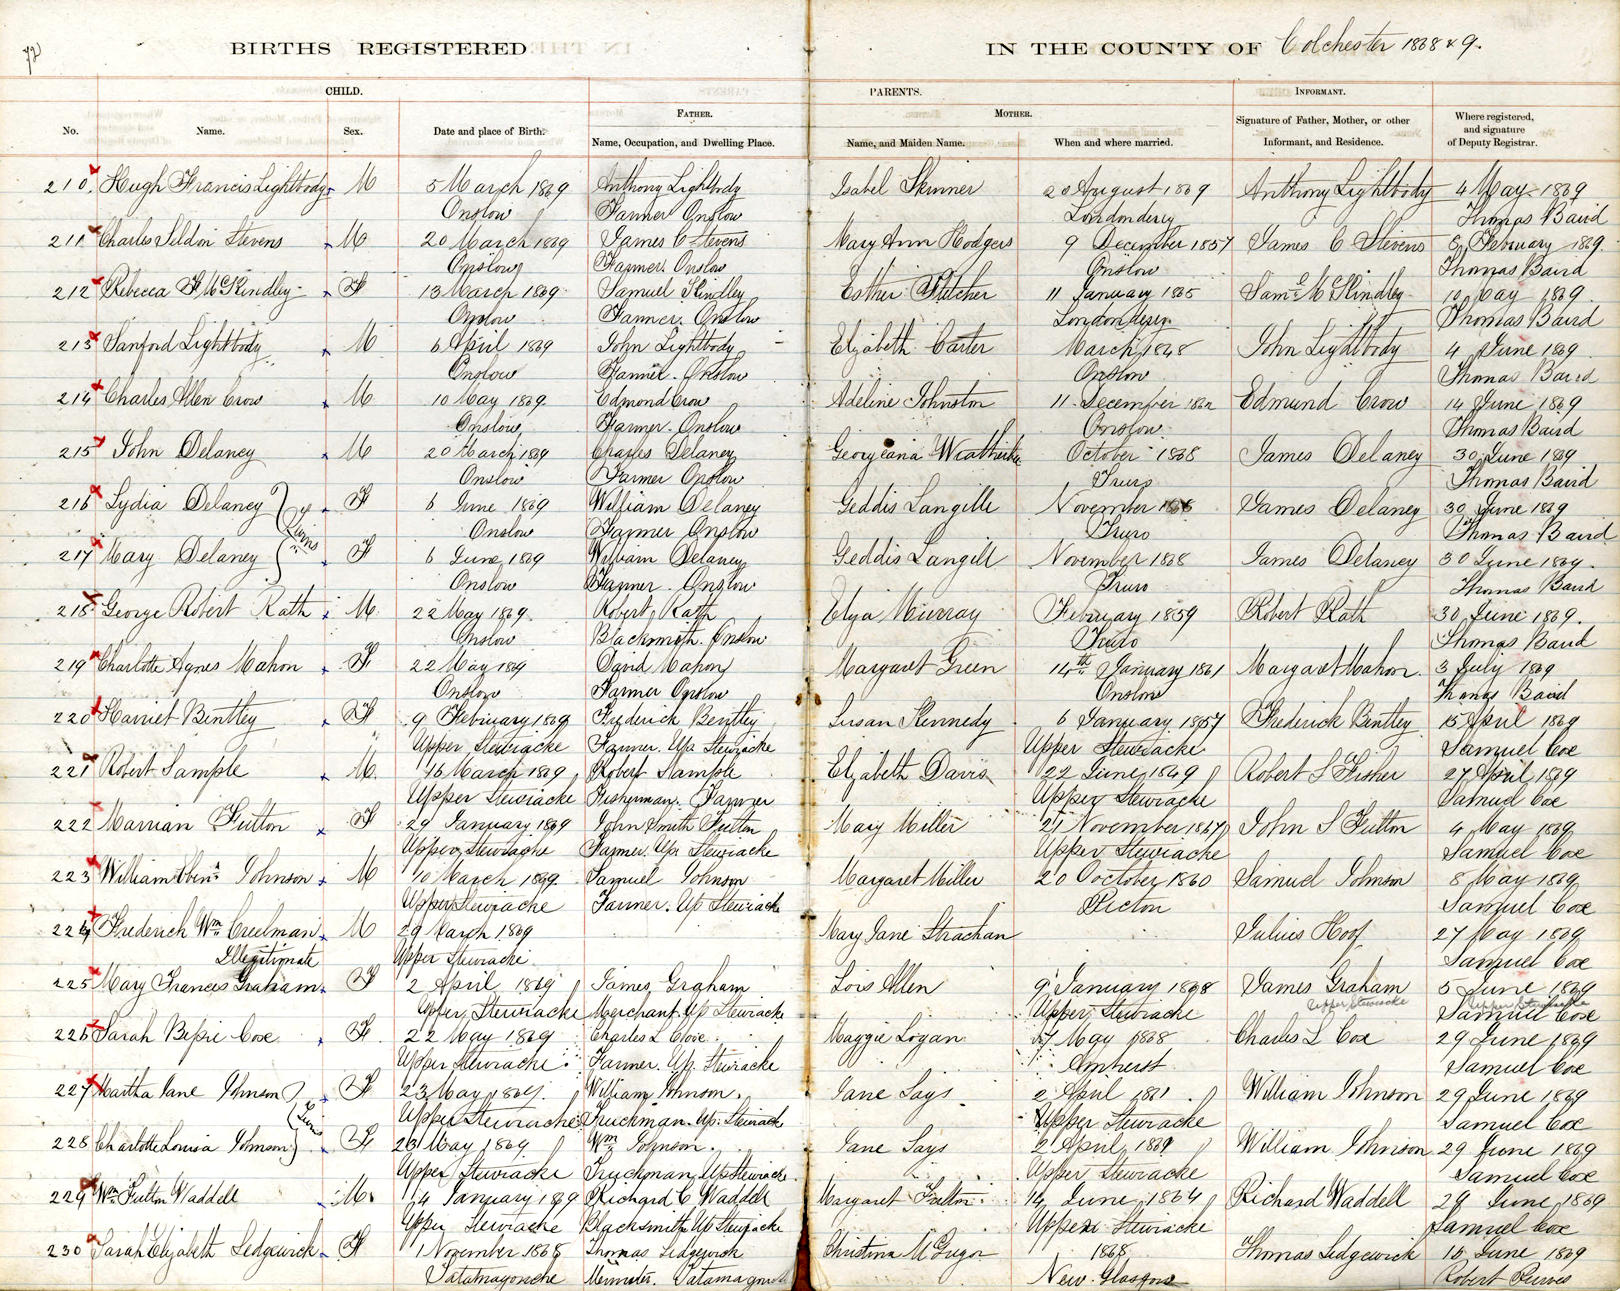 72
BIRTHS REGISTERED IN THE COUNTY OF Colchester 1868 & 9.
CHILD. PARENTS. INFORMANT.
FATHER. MOTHER.
No. Name. Sex. Date and place of Birth. Name, Occupation, and Dwelling Place. Name, and Maiden Name. When and where married. Signature of Father, Mother, or other Informant, and Residence. Where registered, and signature of Deputy Registrar.
210 Hugh Francis Lightbody M 5 March 1869 Anthony Lightbody Isabel Skinner 20 August 1869 Anthony Lightbody 4 May 1869
Onslow Farmer Onslow Londonderry Thomas Baird
211 Charles Seldon Stevens M 20 March 1869 James C Stevens Mary Ann Hodgers 9 December 1857 James C Stevens February 1869.
Onslow Farmer. Onslow Onslow Thomas Baird
212 Rebecca F McKindley F 13 March 1869 Samuel Kindley Esther Fletcher 11 January 1865 Saml McKindley 10 May 1869.
Onslow Farmer. Onslow Londonderry. Thomas Baird
213 Sanford Lightbody M 6 April 1869 John Lightbody Elizabeth Carter March 1848 John Lightbody 4 June 1869.
Onslow Farmer. Onslow Onslow Thomas Baird
214 Charles Allen Crow M 10 May 1869. Edmond Crow Adeline Johnston 11 December Edmund Crow 14 June 1869
Onslow Farmer. Onslow Onslow Thomas Baird
215 John Delaney M 20 March 1869 Charles Delaney Georgeana October 1868 James Delaney 30 June 1869
Onslow Farmer Onslow Truro Thomas Baird
216 Lydia Delaney F 6 June 1869 William Delaney Geddis Langille November James Delaney 30 June 1869
Twins
Onslow Farmer Onslow Truro Thomas Baird
217 Mary Delaney F 6 June 1869 William Delaney Geddis Langill November 1868 James Delaney 30 June 1869.
Onslow Farmer. Onslow Truro Thomas Baird
218 George Robert Rath M. 22 May 1869. Robert Rath Eliza Murray February 1859 Robert Rath 30 June 1869.
Onslow Blacksmith. Onslow Truro Thomas Baird
219 Charlotte Agnes Mahon F 22 May 1869 David Mahon Margaret Green 14th January 1861 Margaret Mahon. 3 July 1869
Onslow Farmer Onslow Onslow Thomas Baird
220 Harriet Bentley F 9 February 1869 Frederick Bentley Susan Kennedy 6 January 1857 Frederick Bentley 15 April 1869
Upper Stewiacke Farmer. Up. Stewiacke Upper Stewiacke Samuel Cox
221 Robert Sample M. 16 March 1869 Robert Sample Elizabeth Davis 22 June 1849 Robert S Fisher 27 April 1869
Upper Stewiacke Fisherman. Farmer Upper Stewiacke Samuel Cox
222 Marrian Fulton F 29 January 1869 John Smith Fulton Mary Miller 21 November 1867 John S Fulton 4 May 1869
Upper Stewiacke Farmer. Up. Stewiacke Upper Stewiacke Samuel Cox
223 William Johnson M 10 March 1869. Samuel Johnson Margaret Miller 20 October 1860 Samuel Johnson 8 May 1869
Upper Stewiacke Farmer. Up Stewiacke Pictou Samuel Cox
224 Frederick Wm Creelman M 29 March 1869 Mary Jane Strachan Julius Hoof 27 May 1869
Illegitimate Upper Stewiacke Samuel Cox
225 Mary Frances Graham F 2 April 1869 James Graham Lois Allen 9 January 1868 James Graham 5 June 1869
Upper Stewiacke Merchant. Up Stewiacke Upper Stewiacke Upper Stewiacke Upper Stewiacke Samuel Cox
226 Sarah Bessie Cox F 22 May 1869 Charles L Cox. Maggie Logan May 1868 Charles L Cox 29 June 1869
Upper Stewiacke Farmer. Up. Stewiacke Amherst Samuel Cox
227 Martha Jane Johnson F 23 May 1869. William Johnson. Jane Says 2 April 1861 William Johnson 29 June 1869
Twins
Upper Stewiacke Truckman. Up. Stewiack Upper Stewiacke Samuel Cox
228 Charlotte Louisa Johnson F 23 May 1869 Wm Johnson. Jane Says 2 April 1861 William Johnson 29 June 1869
Upper Stewiacke Truckman Up Stewiack Upper Stewiacke Samuel Cox
229 Wm Fulton Waddell M. 14 January 1869 Richard C Waddell Margaret Fulton 14 June 1864 Richard Waddell 29 June 1869
Upper Stewiacke Blacksmith Up Stewiacke Upper Stewiacke Samuel Cox
230 Sarah Elizabeth Sedgewick F 1 November 1868 Thomas Sedgewick Christina McGregor 1868 Thomas Sedgewick 16 June 1869
Tatamagouche Minister. Tatamagouche New Glasgow Robert Purves